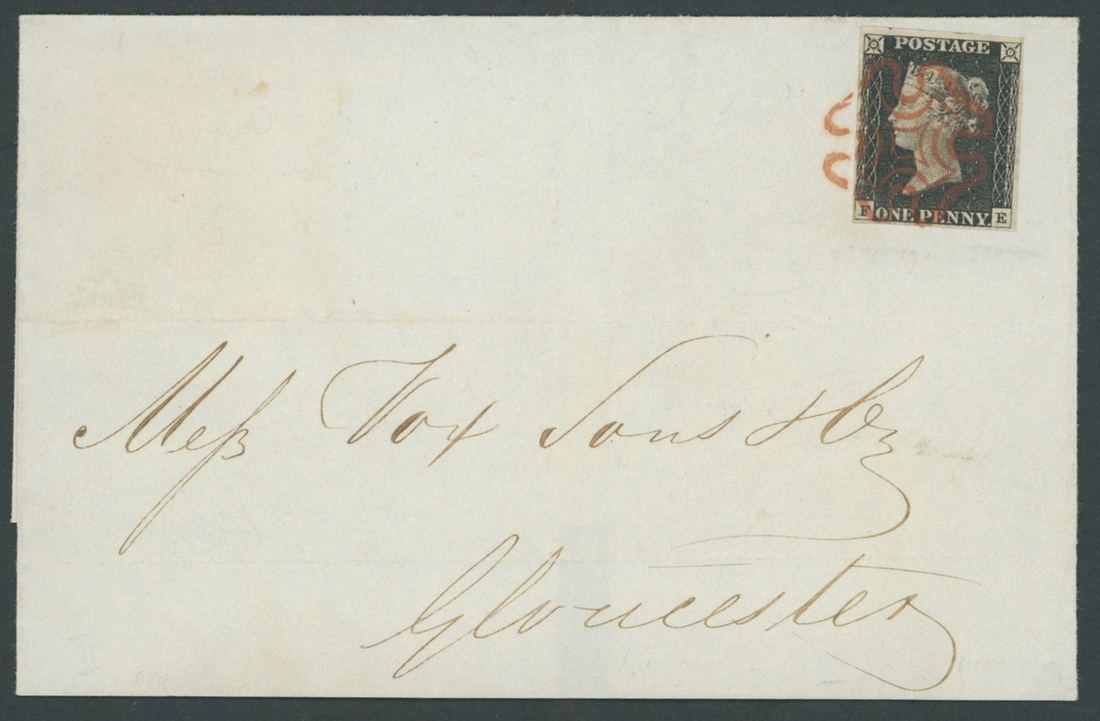 POSTAGE
F ONE PENNY. E
Messrs Fox Sons & Co
Gloucester